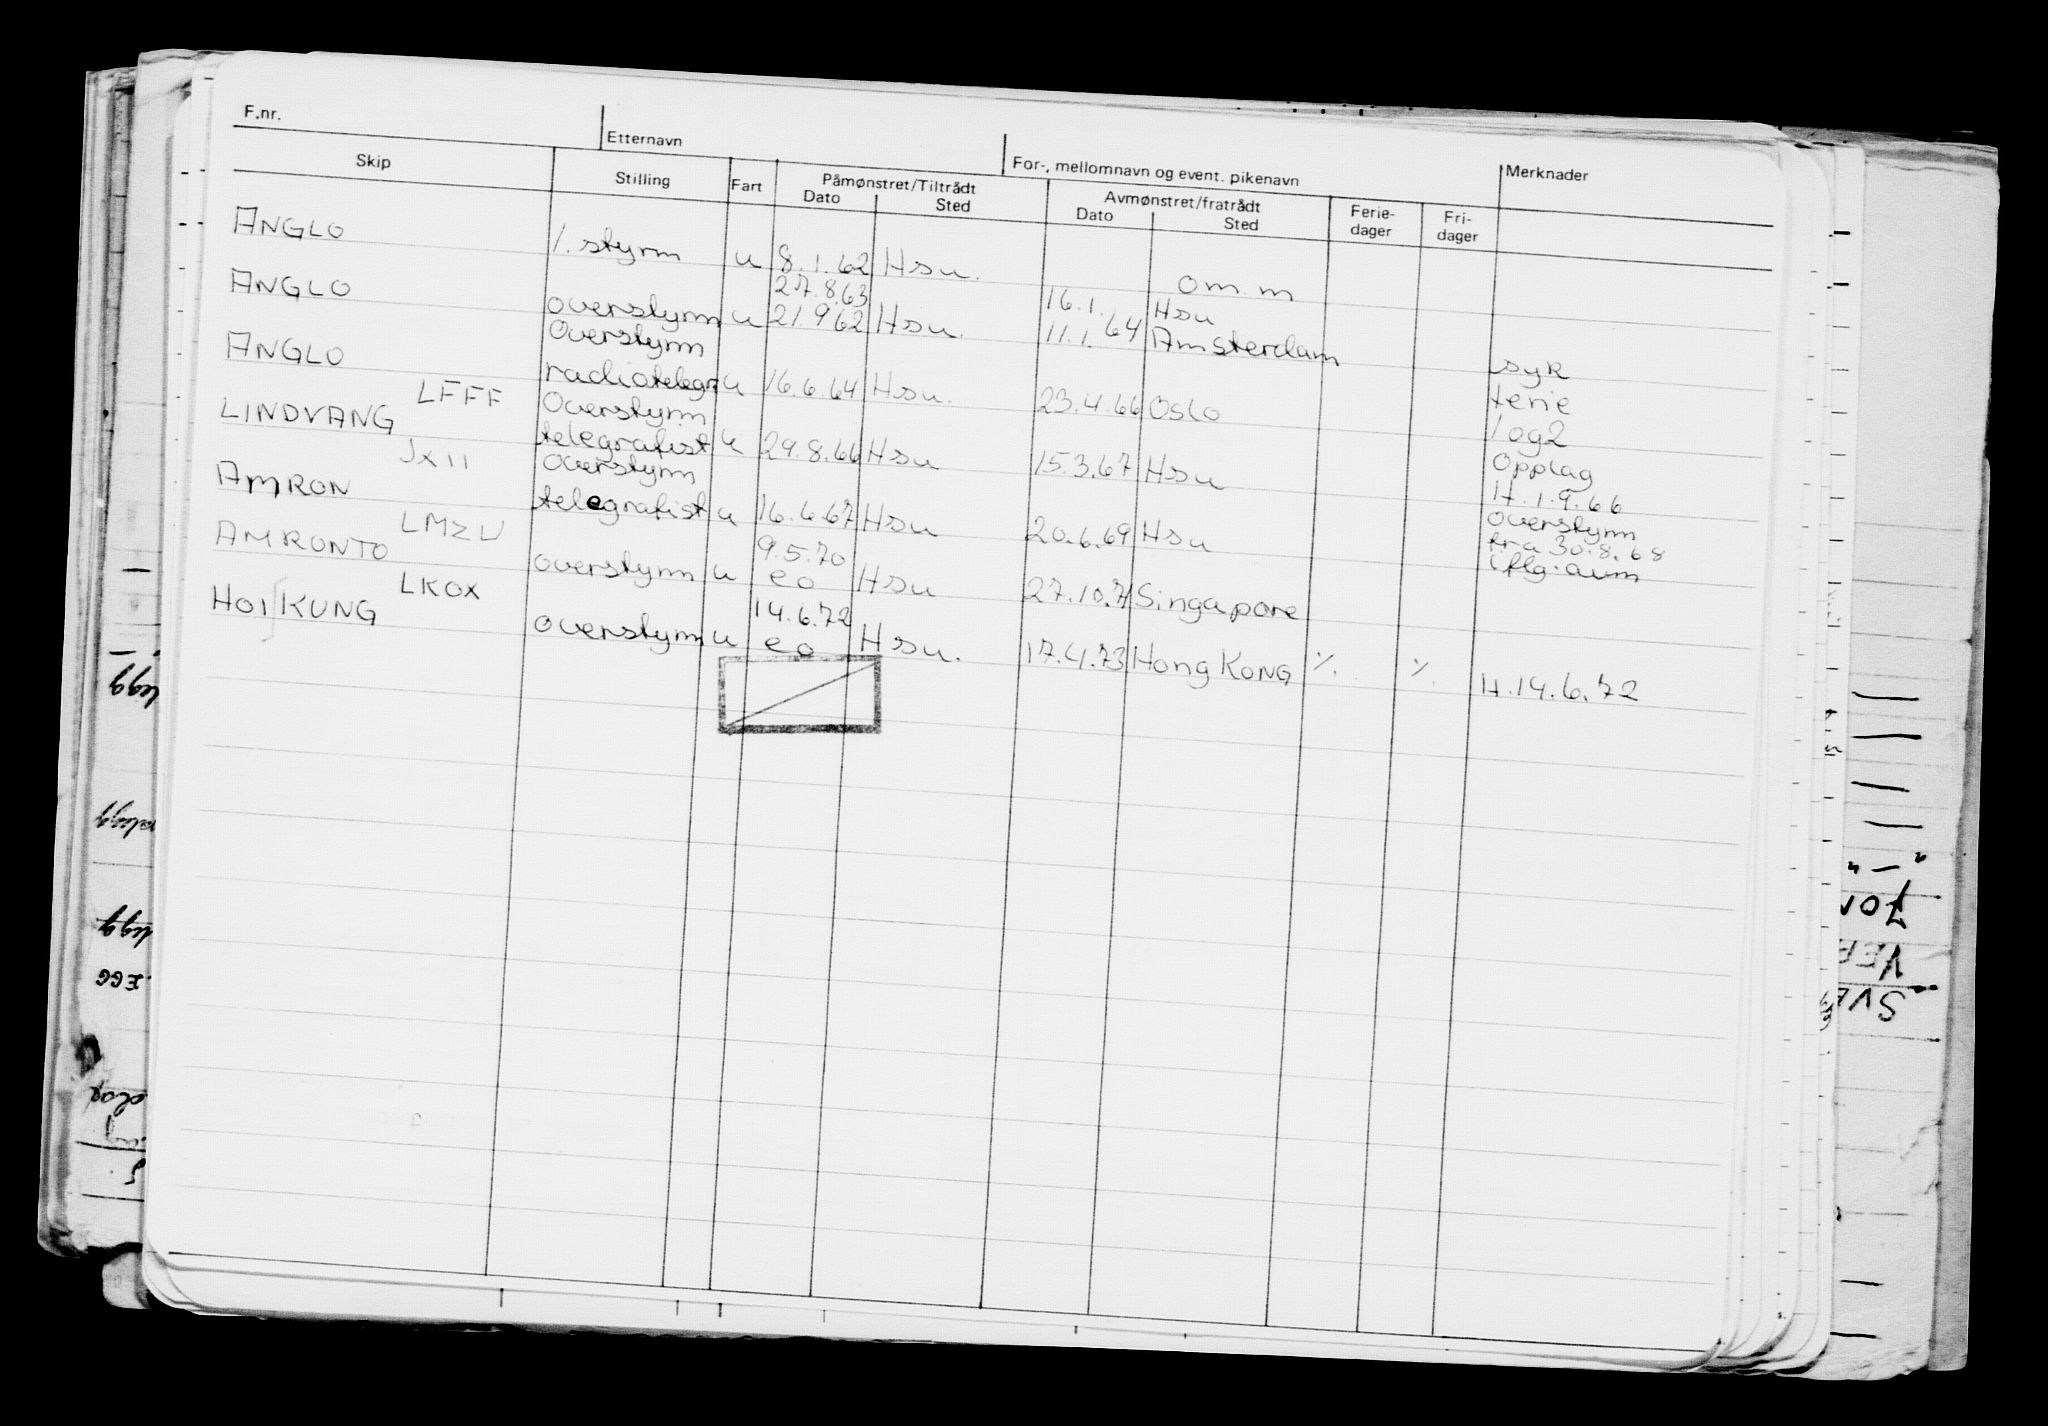 F.nr. Etternavn For-, mellomnavn og event. pikenavn Merknader
Skip Stilling Fart Påmønstret/Tiltrådt Avmønstret/fratrådt Ferie- Fri-
Dato Sted Dato Sted dager dager
ANGLO 1. styrm u 8.1.62 Hsu. om.m
27.8.63 16.1. Hsu
ANGLO overstyrm u 21.9.62 Hsu. 11.1.64 Amsterdam syk
Overstyrm
ANGLO radiotelegr u 16.6.64 Hsu. 23.4.66 Oslo ferie
LFFF Overstyrm 1 og 2
LINDVANG telegrafist u 29.8.66 Hsu 15.3.67 Hsu Opplag
JXII Overstyrm H.1.9.66
AMRON telegrafist u 16.6.67 Hsu 20.6.69 Hsu overstyrm
LMZU 9.5.70 fra 30.8.68
AMRONTO overstyrm u eo Hsu 27.10.71 Singapore iflg. avm
LKOX 14.6.72
HOI KUNG overstyrm u eo Hsu. 17.4.73 Hong Kong ٪ ٪ H.14.6.72